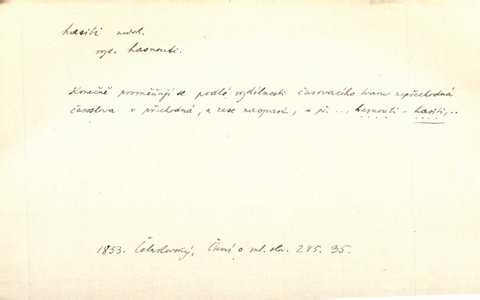 hasiti nedok.
vzd. hasnouti.
Konečně proměňují se podlé rozdílnosti časovacího tvaru nepřechodná
časoslova v přechodná, a zase naopak, n př. ... hasnouti - hasiti, ..
1853. Čelakovský, Čtení o ml. slov. 245. 35.